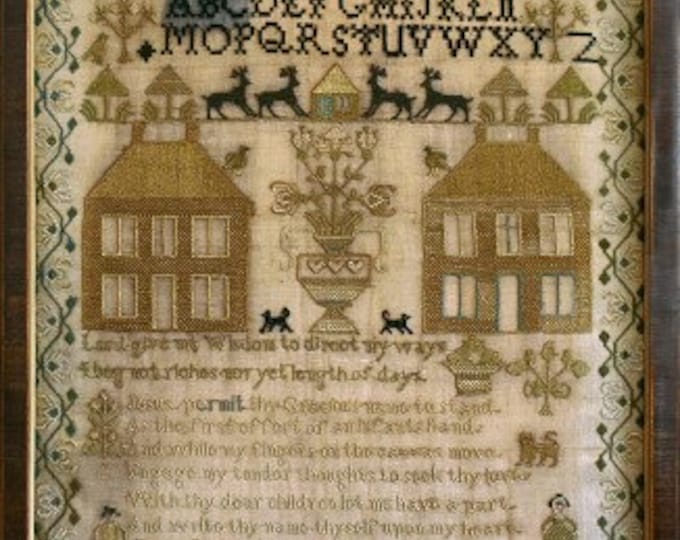 ABCDEFGHIJKLM
MOPQRSTUVWXYZ
Lord give me Wisdom to direct my ways
I beg not riches nor yet length of days
Jesus permit thy Gracious name to stand.
As the first effort of an Infants hand.
And while my fingers on the canvas move.
Engage my tender thoughts to seek thy love.
With thy dear children let me have a part.
And write thy name thyself upon my heart.